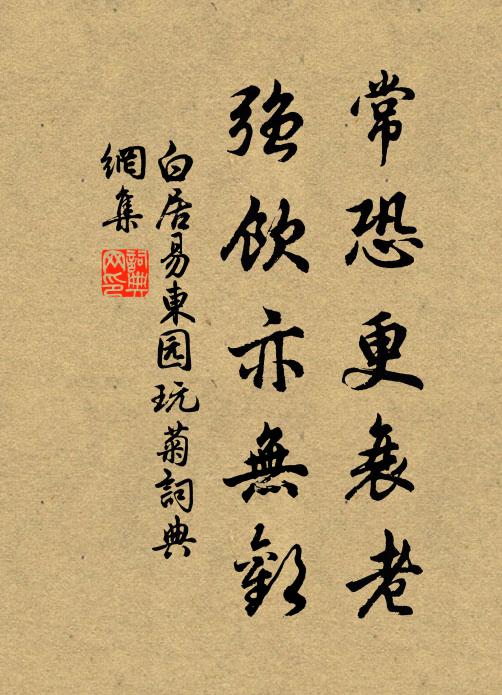 常恐更衰老
強飲亦無歡
白居易東园玩菊詞典
網集
詞典网印